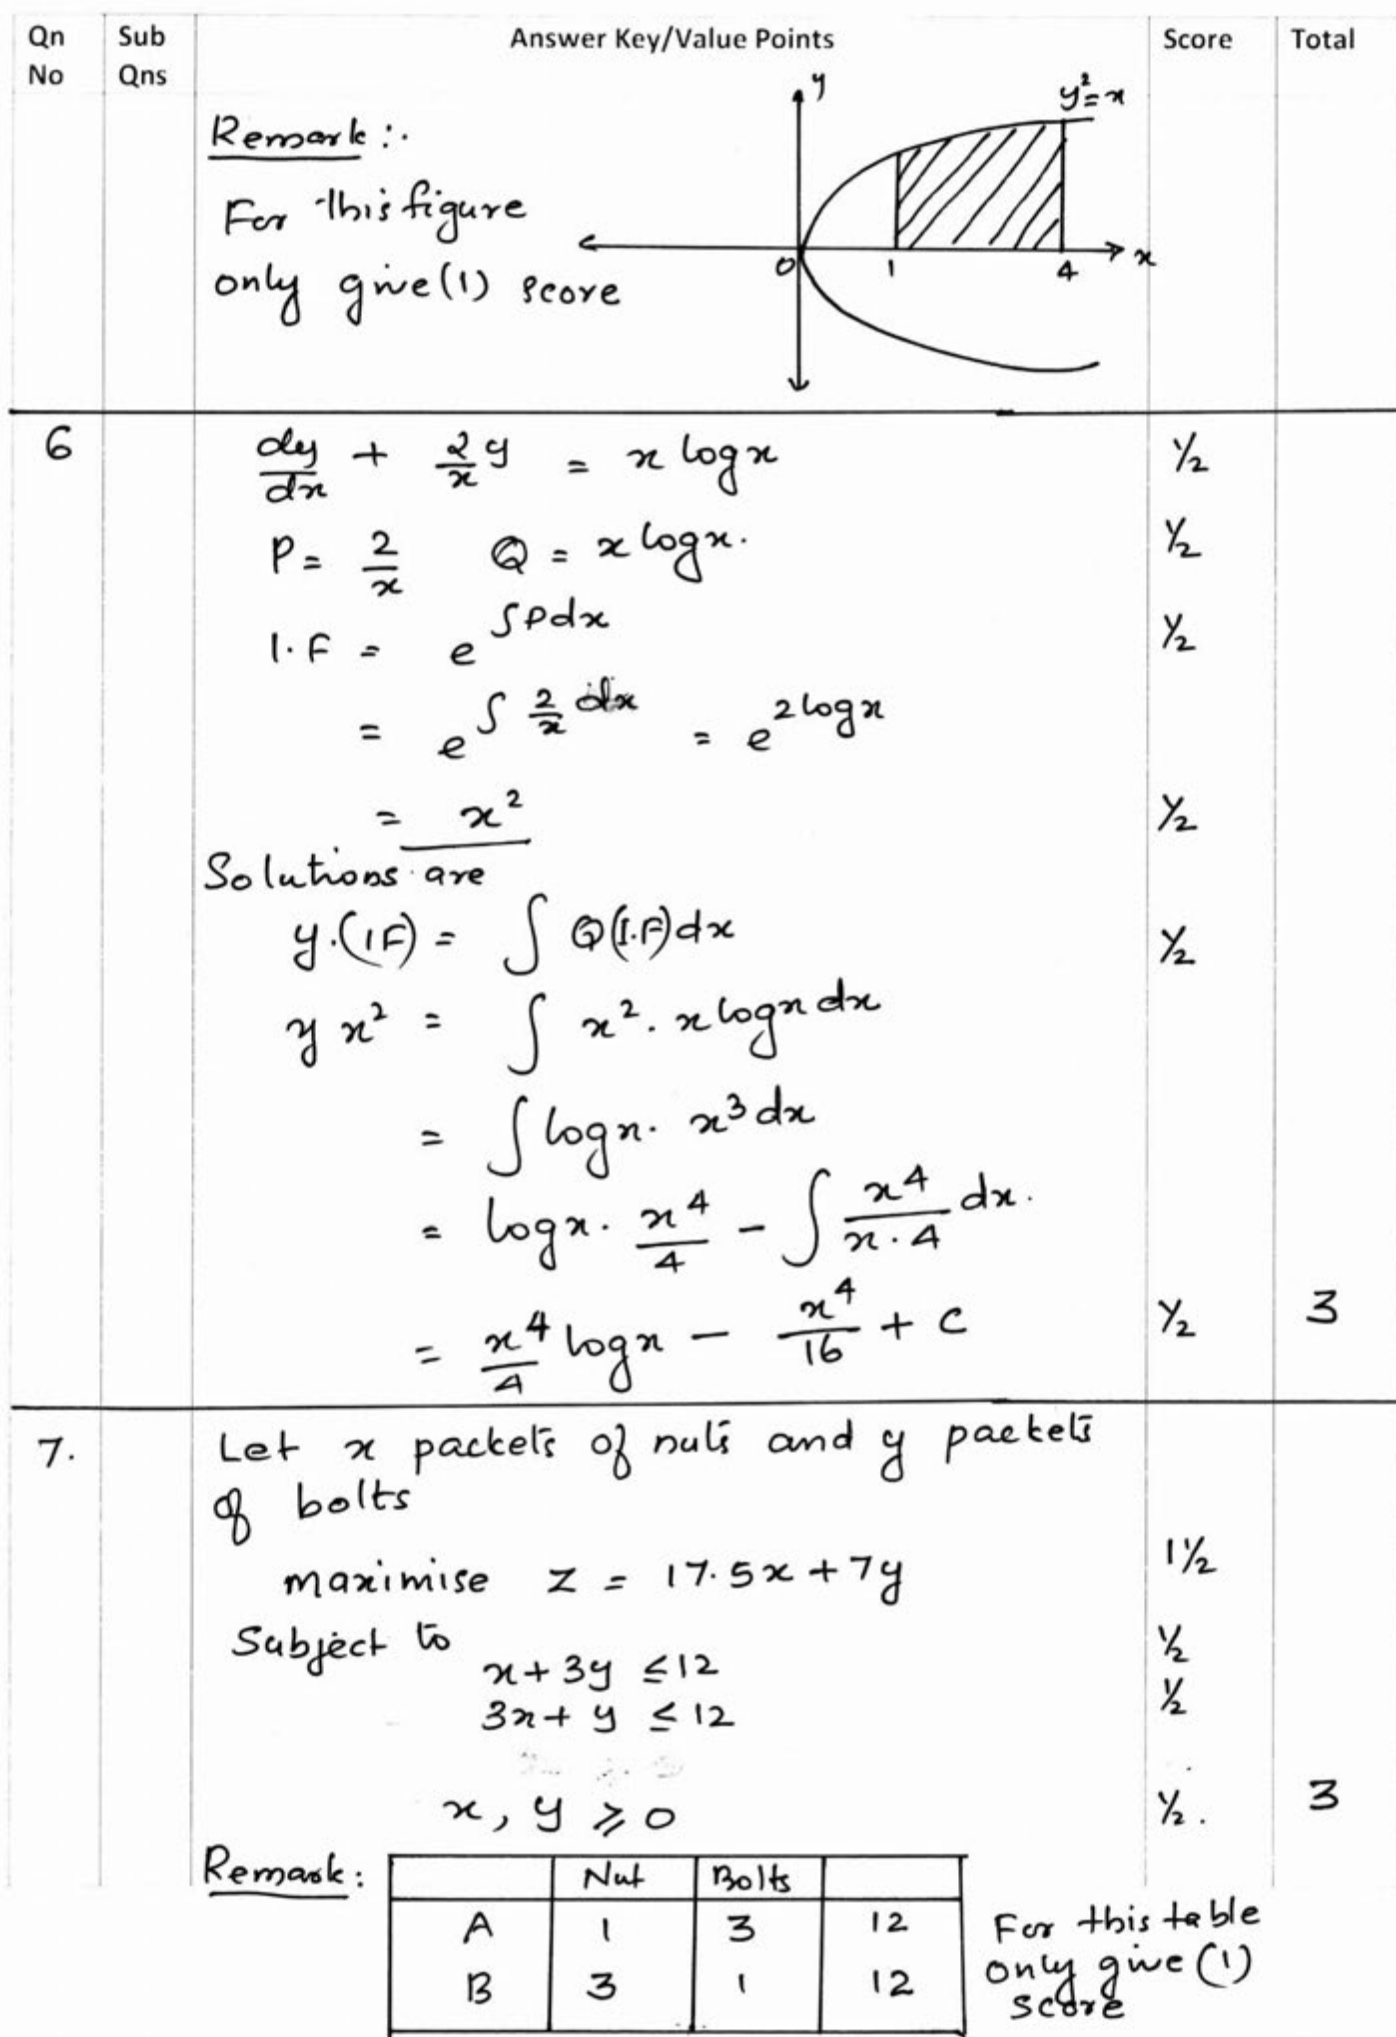 Qn No Sub Qns Answer Key/Value Points Score Total
Remark :.
For this figure
only give (1) score
y
y²=x
0 1 4 x
6 dy/dx + 2/x y = x logx ½
P = 2/x Q = x logx. ½
I.F = e^∫Pdx ½
= e^∫ 2/x dx = e^2logx
= x² ½
Solutions are
y.(IF) = ∫ Q(I.F)dx ½
y x² = ∫ x². x logx dx
= ∫ logx. x³ dx
= logx. x⁴/4 - ∫ x⁴/x.4 dx.
= x⁴/4 logx - x⁴/16 + C ½ 3
7. Let x packets of nuts and y packets
of bolts
maximise Z = 17.5x + 7y 1½
Subject to
x + 3y ≤ 12 ½
3x + y ≤ 12 ½
x, y ≥ 0 ½. 3
Remark:
Nut Bolts
A 1 3 12
B 3 1 12
For this table
only give (1)
score